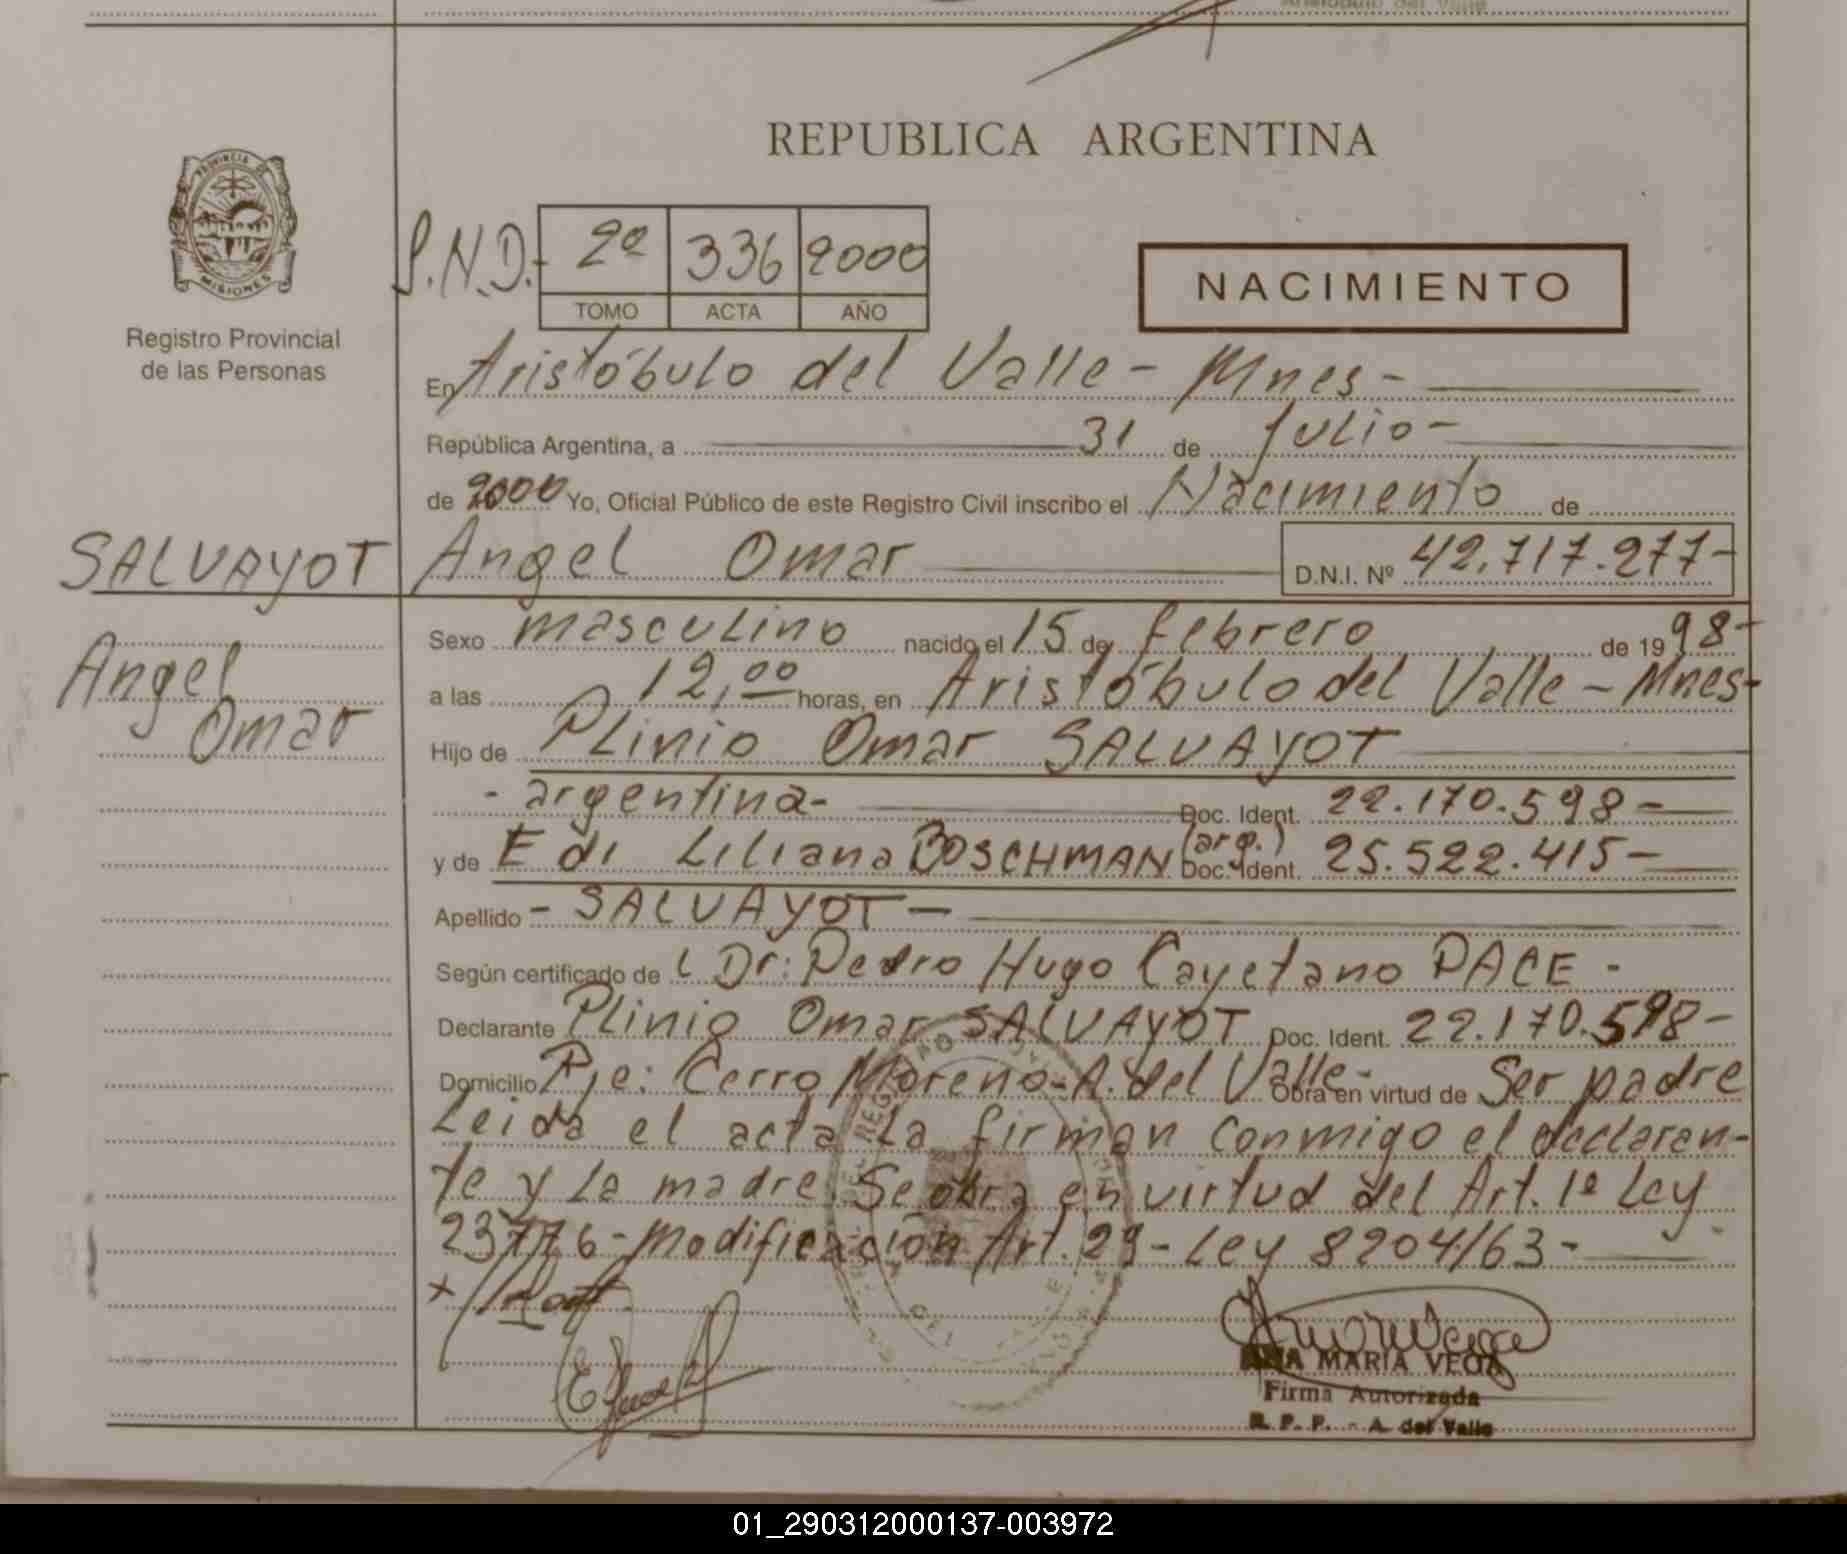 Aristobulo del Valle
REPUBLICA ARGENTINA
PROVINCIA DE
MISIONES
Registro Provincial
de las Personas
S.N.D.- 2º 336 2000
TOMO ACTA AÑO
NACIMIENTO
En Aristóbulo del Valle - Mnes -
República Argentina, a 31 de Julio -
de 2000 Yo, Oficial Público de este Registro Civil inscribo el Nacimiento de
SALVAYOT Angel Omar D.N.I. Nº 42.717.277-
Angel
Omar
Sexo masculino nacido el 15 de febrero de 1998-
a las 12,00 horas, en Aristóbulo del Valle - Mnes-
Hijo de Plinio Omar SALVAYOT
- argentina- Doc. Ident. 22.170.598-
y de Edi Liliana BOSCHMAN (arg.) Doc. Ident. 25.522.415-
Apellido - SALVAYOT -
Según certificado de Dr: Pedro Hugo Cayetano PACE -
Declarante Plinio Omar SALVAYOT Doc. Ident. 22.170.598-
Domicilio Pje: Cerro Moreno-A. del Valle- Obra en virtud de Ser padre
Leida el acta la firman conmigo el declaran-
te y la madre. Se obra en virtud del Art. 1º Ley
23776-Modificación Art. 29-Ley 8204/63-
ANA MARIA VEGA
Firma Autorizada
R. P. P. - A. del Valle
01_290312000137-003972